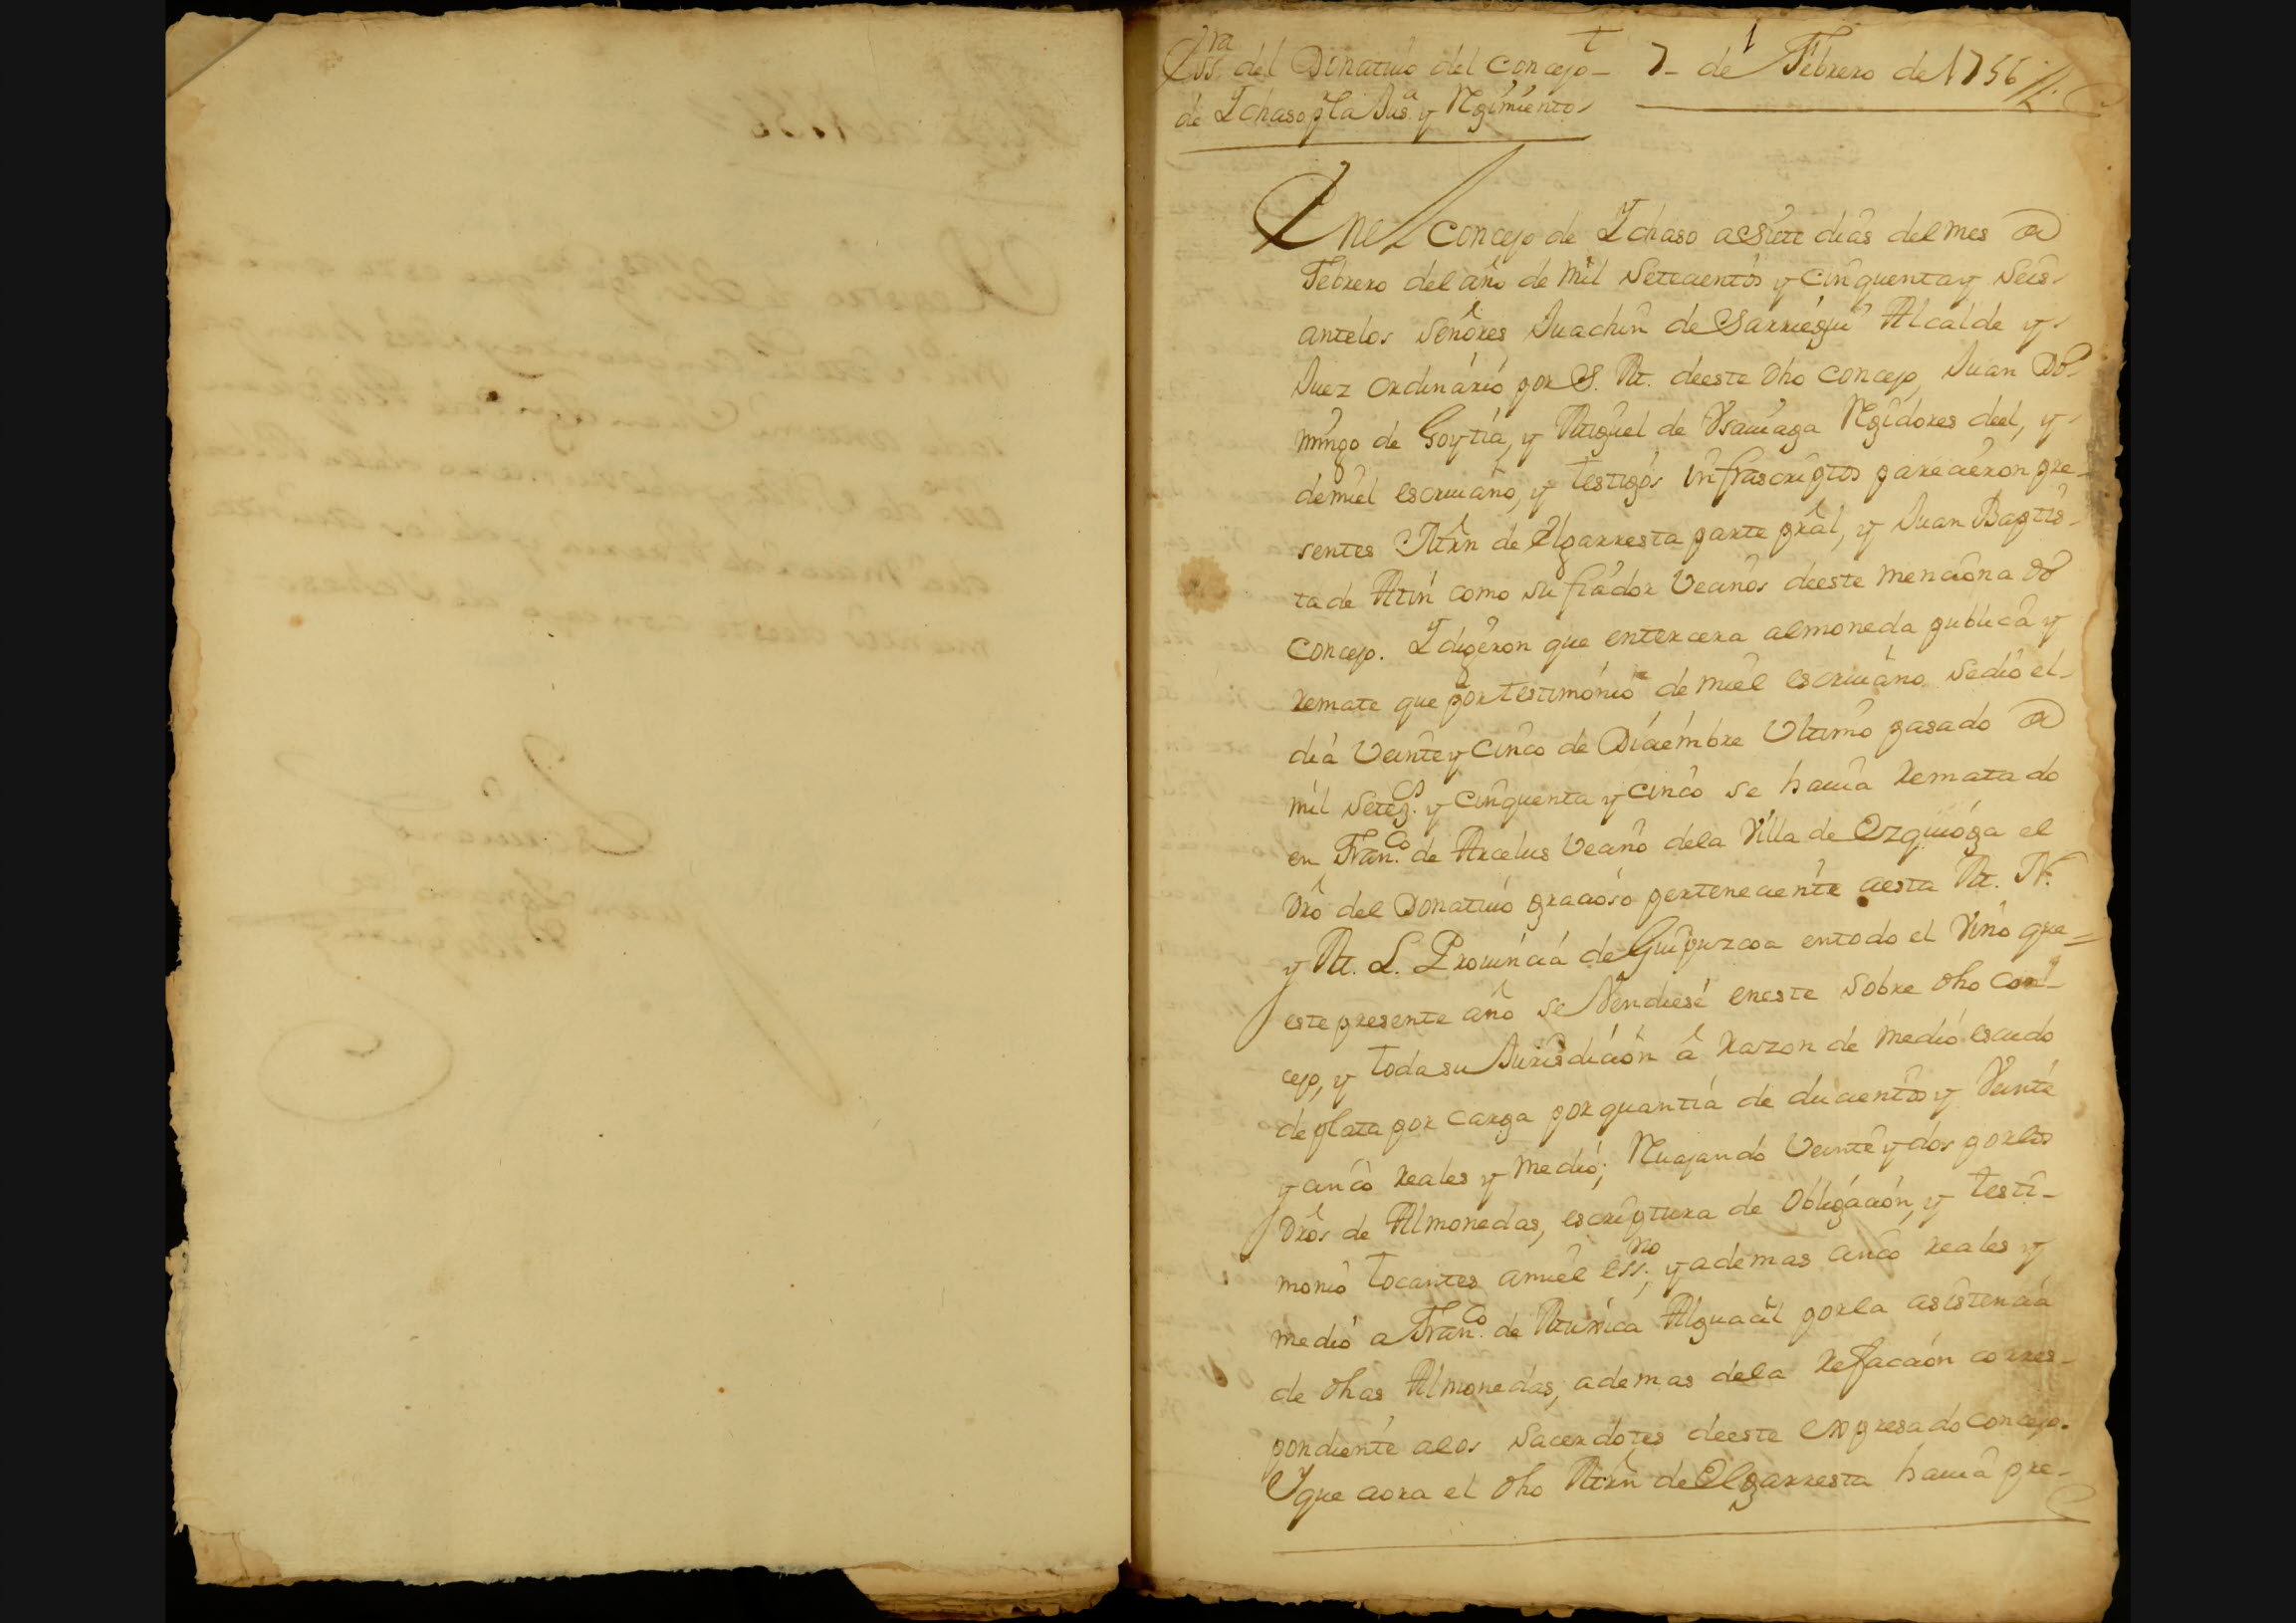 Ess.ra del Donatiuo del Concejo
de Ychaso p.r la Jus.a y Rgimiento
1
7 de Febrero de 1756
En el Concejo de Ychaso a siete dias del mes de
Febrero del año de mil Setecientos y cinquenta y Seis
ante los Señores Juachin de Sarriegui Alcalde y
Juez ordinario por S. M. de este dho Concejo, Juan Do-
mingo de Goytia, y Miguel de Vsauiaga Rgidores del, y
de mi el escriuano, y testigos infrascriptos parecieron pre-
sentes Mrn de Elgarresta parte pral, y Juan Baptis-
ta de Atin como su fiador Vecinos de este menciona do
Concejo. Y digeron que en tercera almoneda publica y
remate que por testimonio de mi el escriuano se dio el
dia Veinte y cinco de Diciembre Vltimo pasado de
mil Seteg.s y cinquenta y cinco se hauia rematado
en Fran.co de Arcelus Vecino de la Villa de Ezquioga el
dro del Donatiuo gracioso perteneciente a esta M. N.
y M. L. Prouincia de Guipuzcoa en todo el Vino que
este presente año se Vendiese en este sobre dho Con-
cejo, y toda su Jurisdicion â razon de medio escudo
de plata por carga por quantia de ducientos y Veinte
y cinco reales y medio; Ruajando Veinte y dos por los
Dros de Almonedas, escriptura de Obligacion, y testi-
monio tocantes a mi el ess.no, y ademas cinco reales y
medio a Fran.co de Muxica Alguacil por la asistencia
de dhas Almonedas, ademas de la refaccion corres-
pondiente a los Sacerdotes de este expresado Concejo.
Y que aora el dho Mrn de Elgarresta hauia pre-